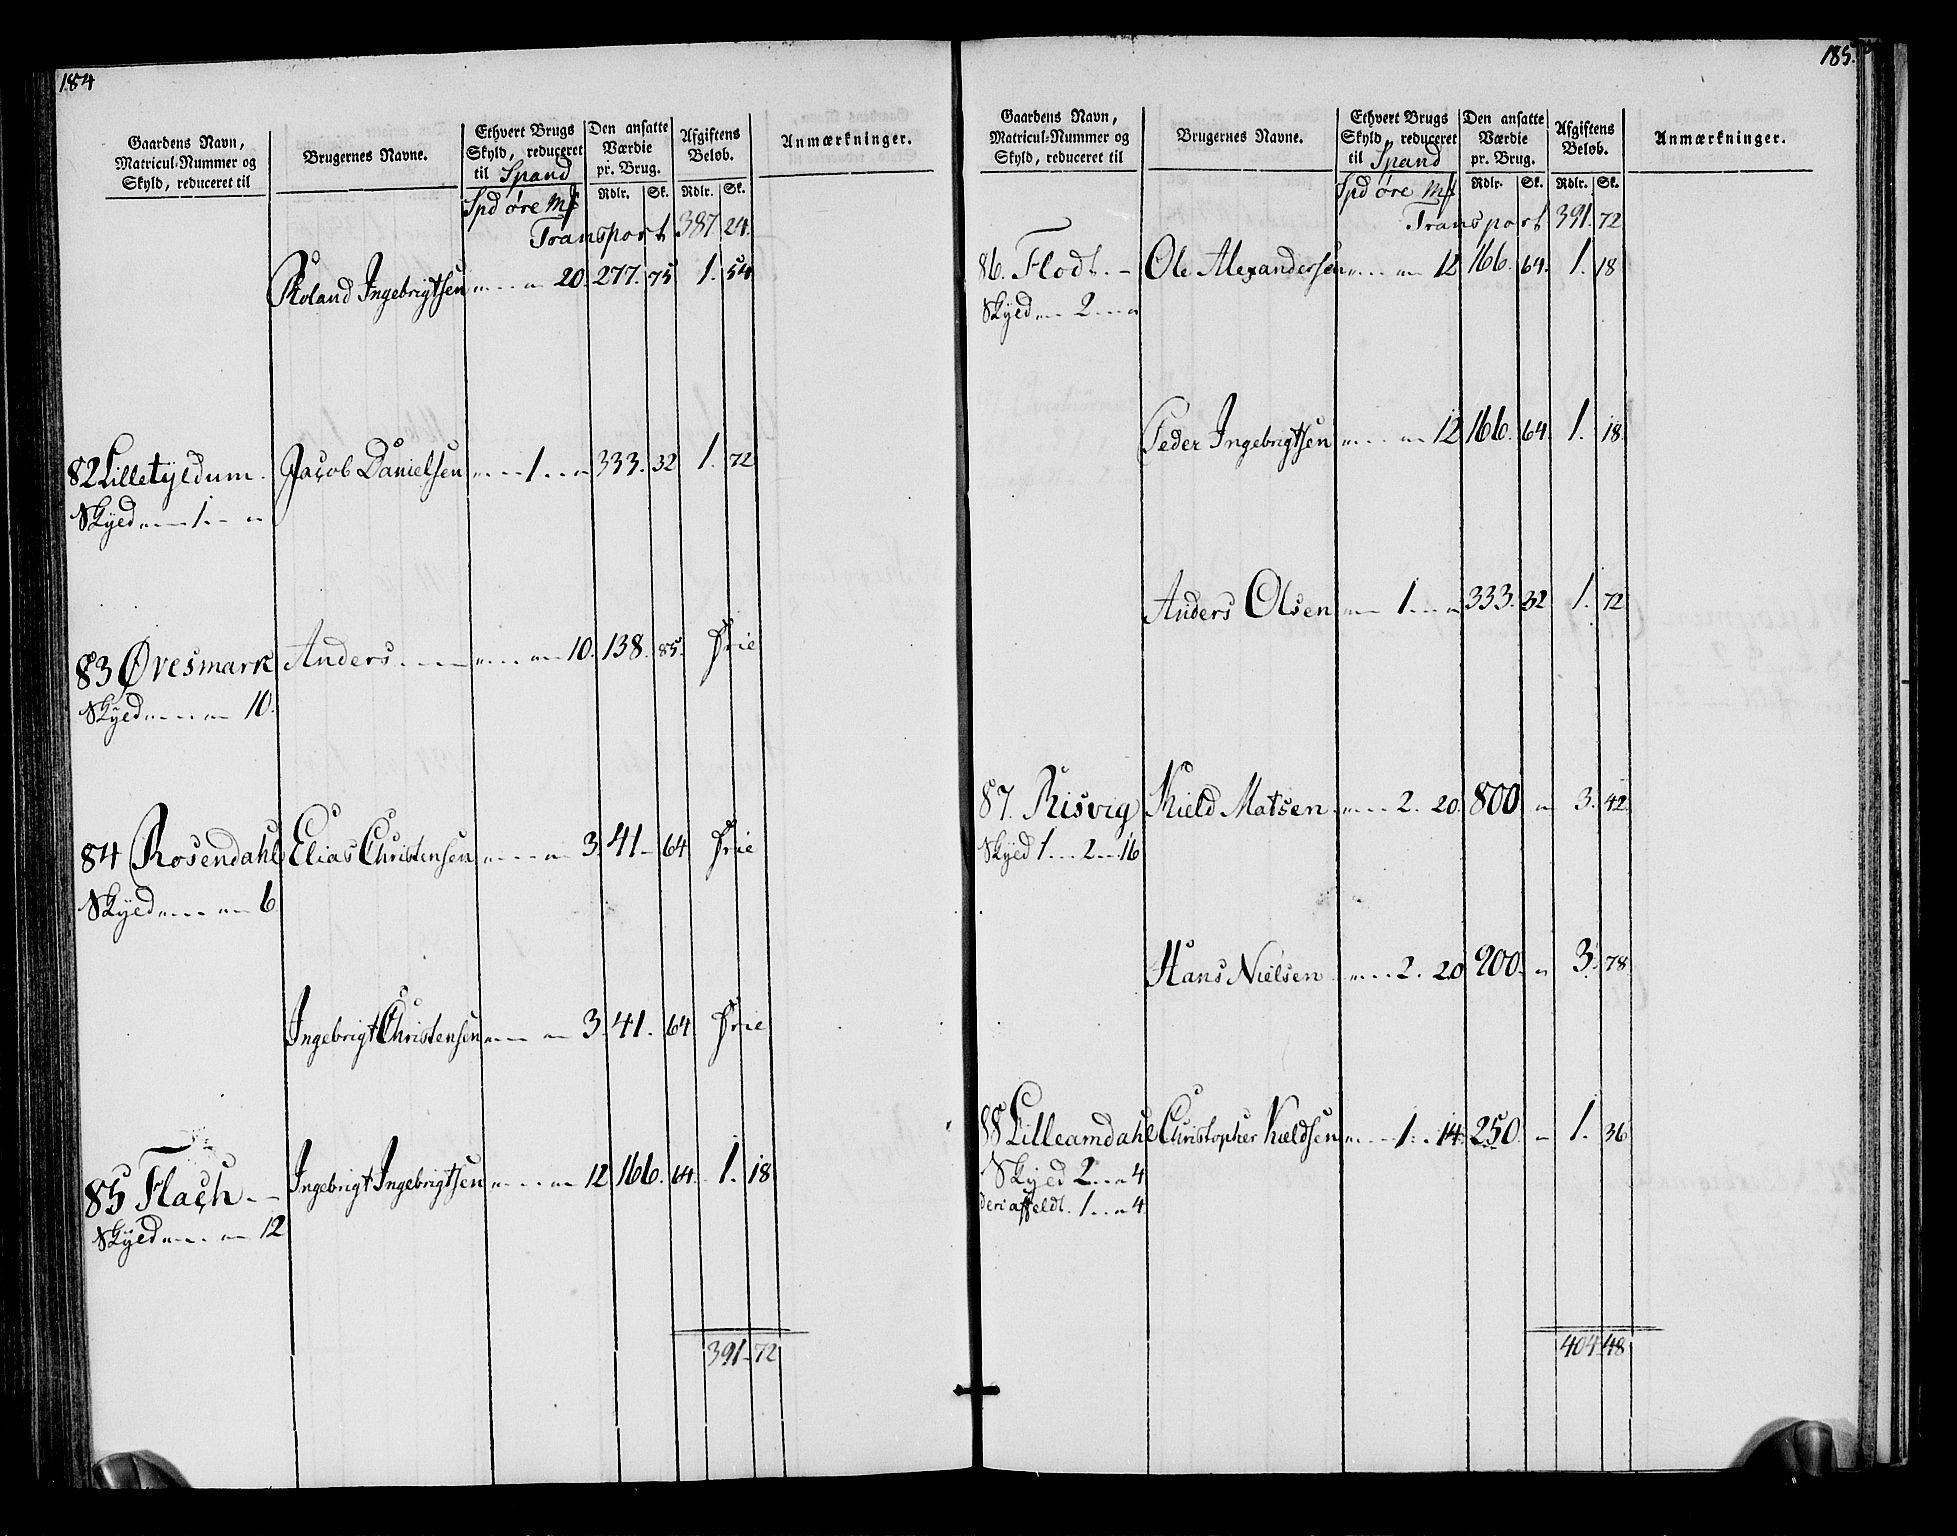 184
Gaardens Navn, Matricul-Nummer og Skyld, reduceret til
Brugernes Navne.
Ethvert Brugs Skyld, reduceret til Spand
Den ansatte Værdie pr. Brug.
Afgiftens Beløb.
Anmærkninger.
Spd øre Mƒ Rdlr. Sk. Rdlr. Sk.
Transport 387 24.
Roland Ingebrigtsen „ - - - „ 20. 277. 75 1. 54
82 Lilletyldum. Jacob Danielsen „ - - 1 - - „ 333. 32 1. 72
Skyld „ - - 1. - „
83 Øvesmark Anders - - - „ - - - „ 10. 138. 85. Frie
Skyld „ - - - „ 10.
84 Rosendahl Elias Christensen „ - - - „ 3. 41 - 64 Frie
Skyld „ - - - „ 6
Ingebrigt Christensen „ - - - „ 3. 41. 64 Frie
85 Flach - - Ingebrigt Ingebrigtsen „ - - - „ 12 166. 64. 1. 18
Skyld „ - - - „ 12
391 - 72
185.
Gaardens Navn, Matricul-Nummer og Skyld, reduceret til
Brugernes Navne.
Ethvert Brugs Skyld, reduceret til Spand
Den ansatte Værdie pr. Brug.
Afgiftens Beløb.
Anmærkninger.
Spd øre Mƒ Rdlr. Sk. Rdlr. Sk.
Transport 391. 72
86. Flodt. - Ole Alexandersen „ - - - „ 12 166. 64. 1. 18
Skyld „ - - 2 - - „
Peder Ingebrigtsen „ - - - „ 12 166. 64. 1. 18.
Anders Olsen „ - - 1. - - „ 333. 32 1. 72
87. Risvig Kield Matsen „ - - - 2. 20. 800 „ 3. 42
Skyld 1 - - 2 - - 16
Hans Nielsen „ - - - 2. 20 900. „ 3. 78
88 Lilleamdahl Christopher Kieldsen „ - - 1. - 14. 250 - „ 1. 36
Skyld 2 - - „ 4
deri affeldt. 1 - - „ 4
404. 48